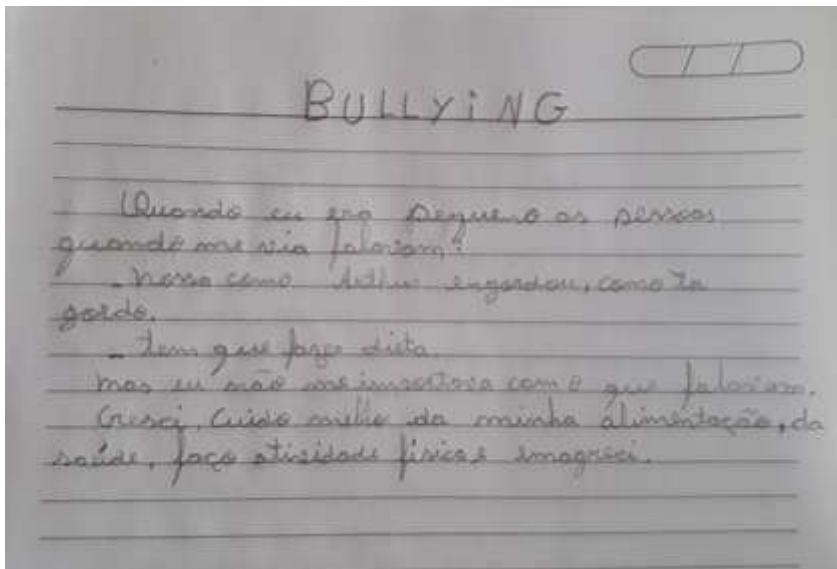 BULLYiNG
Quando eu era pequeno as pessoas
quando me via falavam:
- Nossa como Arthur engordou, como ta
gordo.
- tem que faze dieta.
mas eu não me importava com o que falavam.
Cresci, Cuido melho da minha alimentação, da
saúde, faço atividade fisica e emagreci.